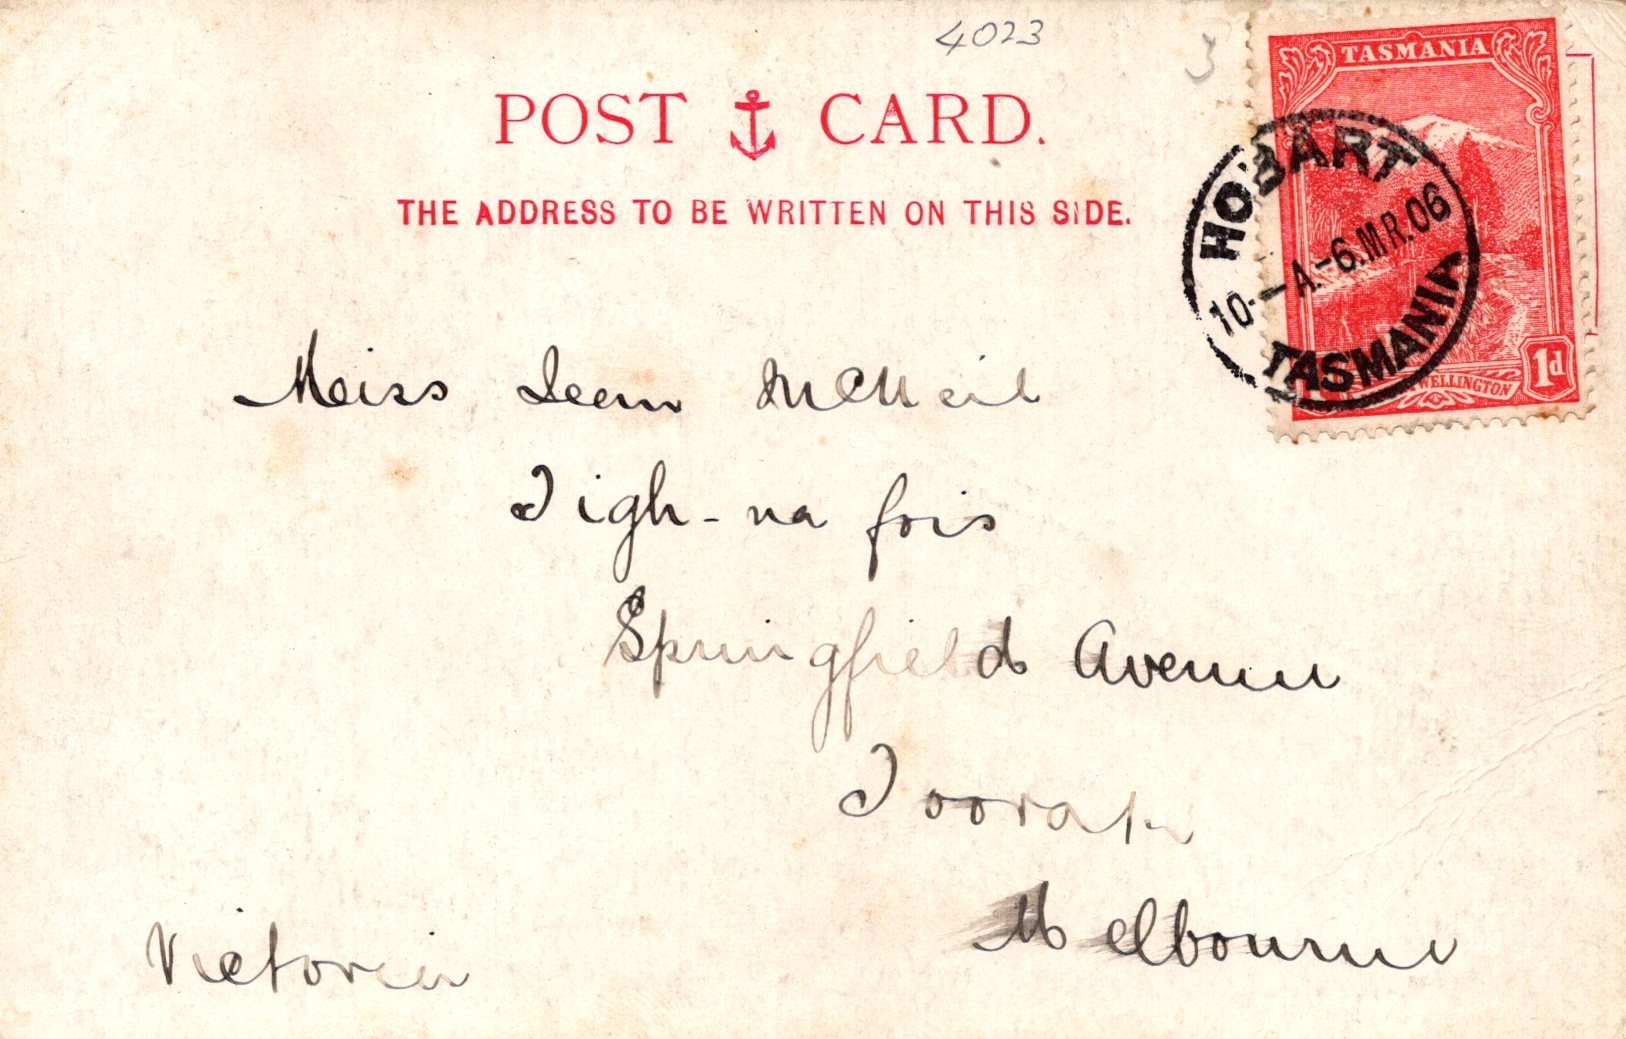 4023
POST CARD.
THE ADDRESS TO BE WRITTEN ON THIS SIDE.
TASMANIA
HOBART
10-A.-6.MR.06
TASMANIA
WELLINGTON
1d
Miss Jean McNeil
Tigh-na fois
Springfield Avenue
Toorak
Melbourne
Victoria